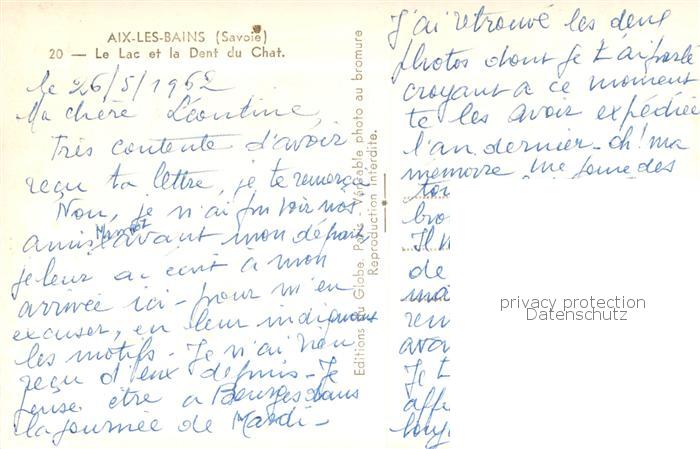 AIX-LES-BAINS (Savoie)
20 — Le Lac et la Dent du Chat.
le 26/5/1962
Ma chère Léontine,
Très contente d'avoir
reçu ta lettre, je te remercie
Non, je n'ai pu voir nos
amis avant mon départ,
je leur ai écrit à mon
arrivée ici - pour m'en
excuser, en leur indiquant
les motifs - Je n'ai rien
reçu d'eux depuis - Je
pense être a Bourges dans
la journée de Mardi -
Editions du Globe, Paris - Véritable photo au bromure
Reproduction interdite.
J'ai retrouvé les deux
photos dont je t'ai parlé
croyant a ce moment
te les avoir expédiées
l'an dernier - oh! ma
memoire me joue des
tou
bro
Il n
de
mai
rem
avo
Je t
affe
long
privacy protection
Datenschutz